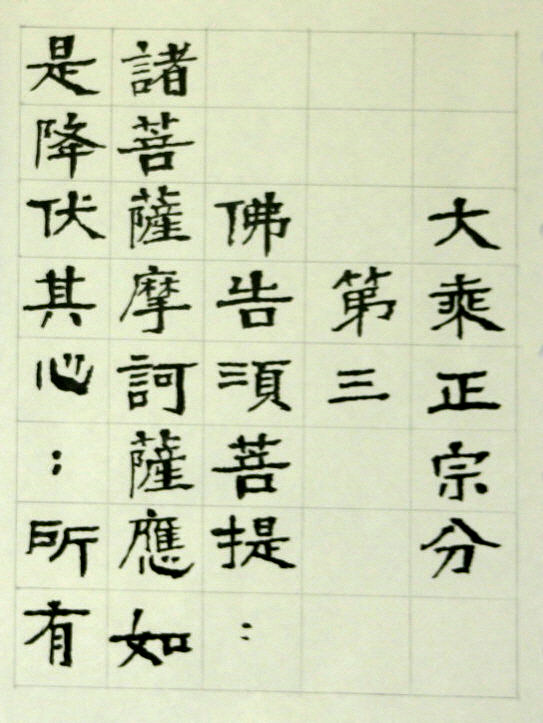 大乘正宗分
第三
佛告須菩提：
諸菩薩摩訶薩應如
是降伏其心：所有